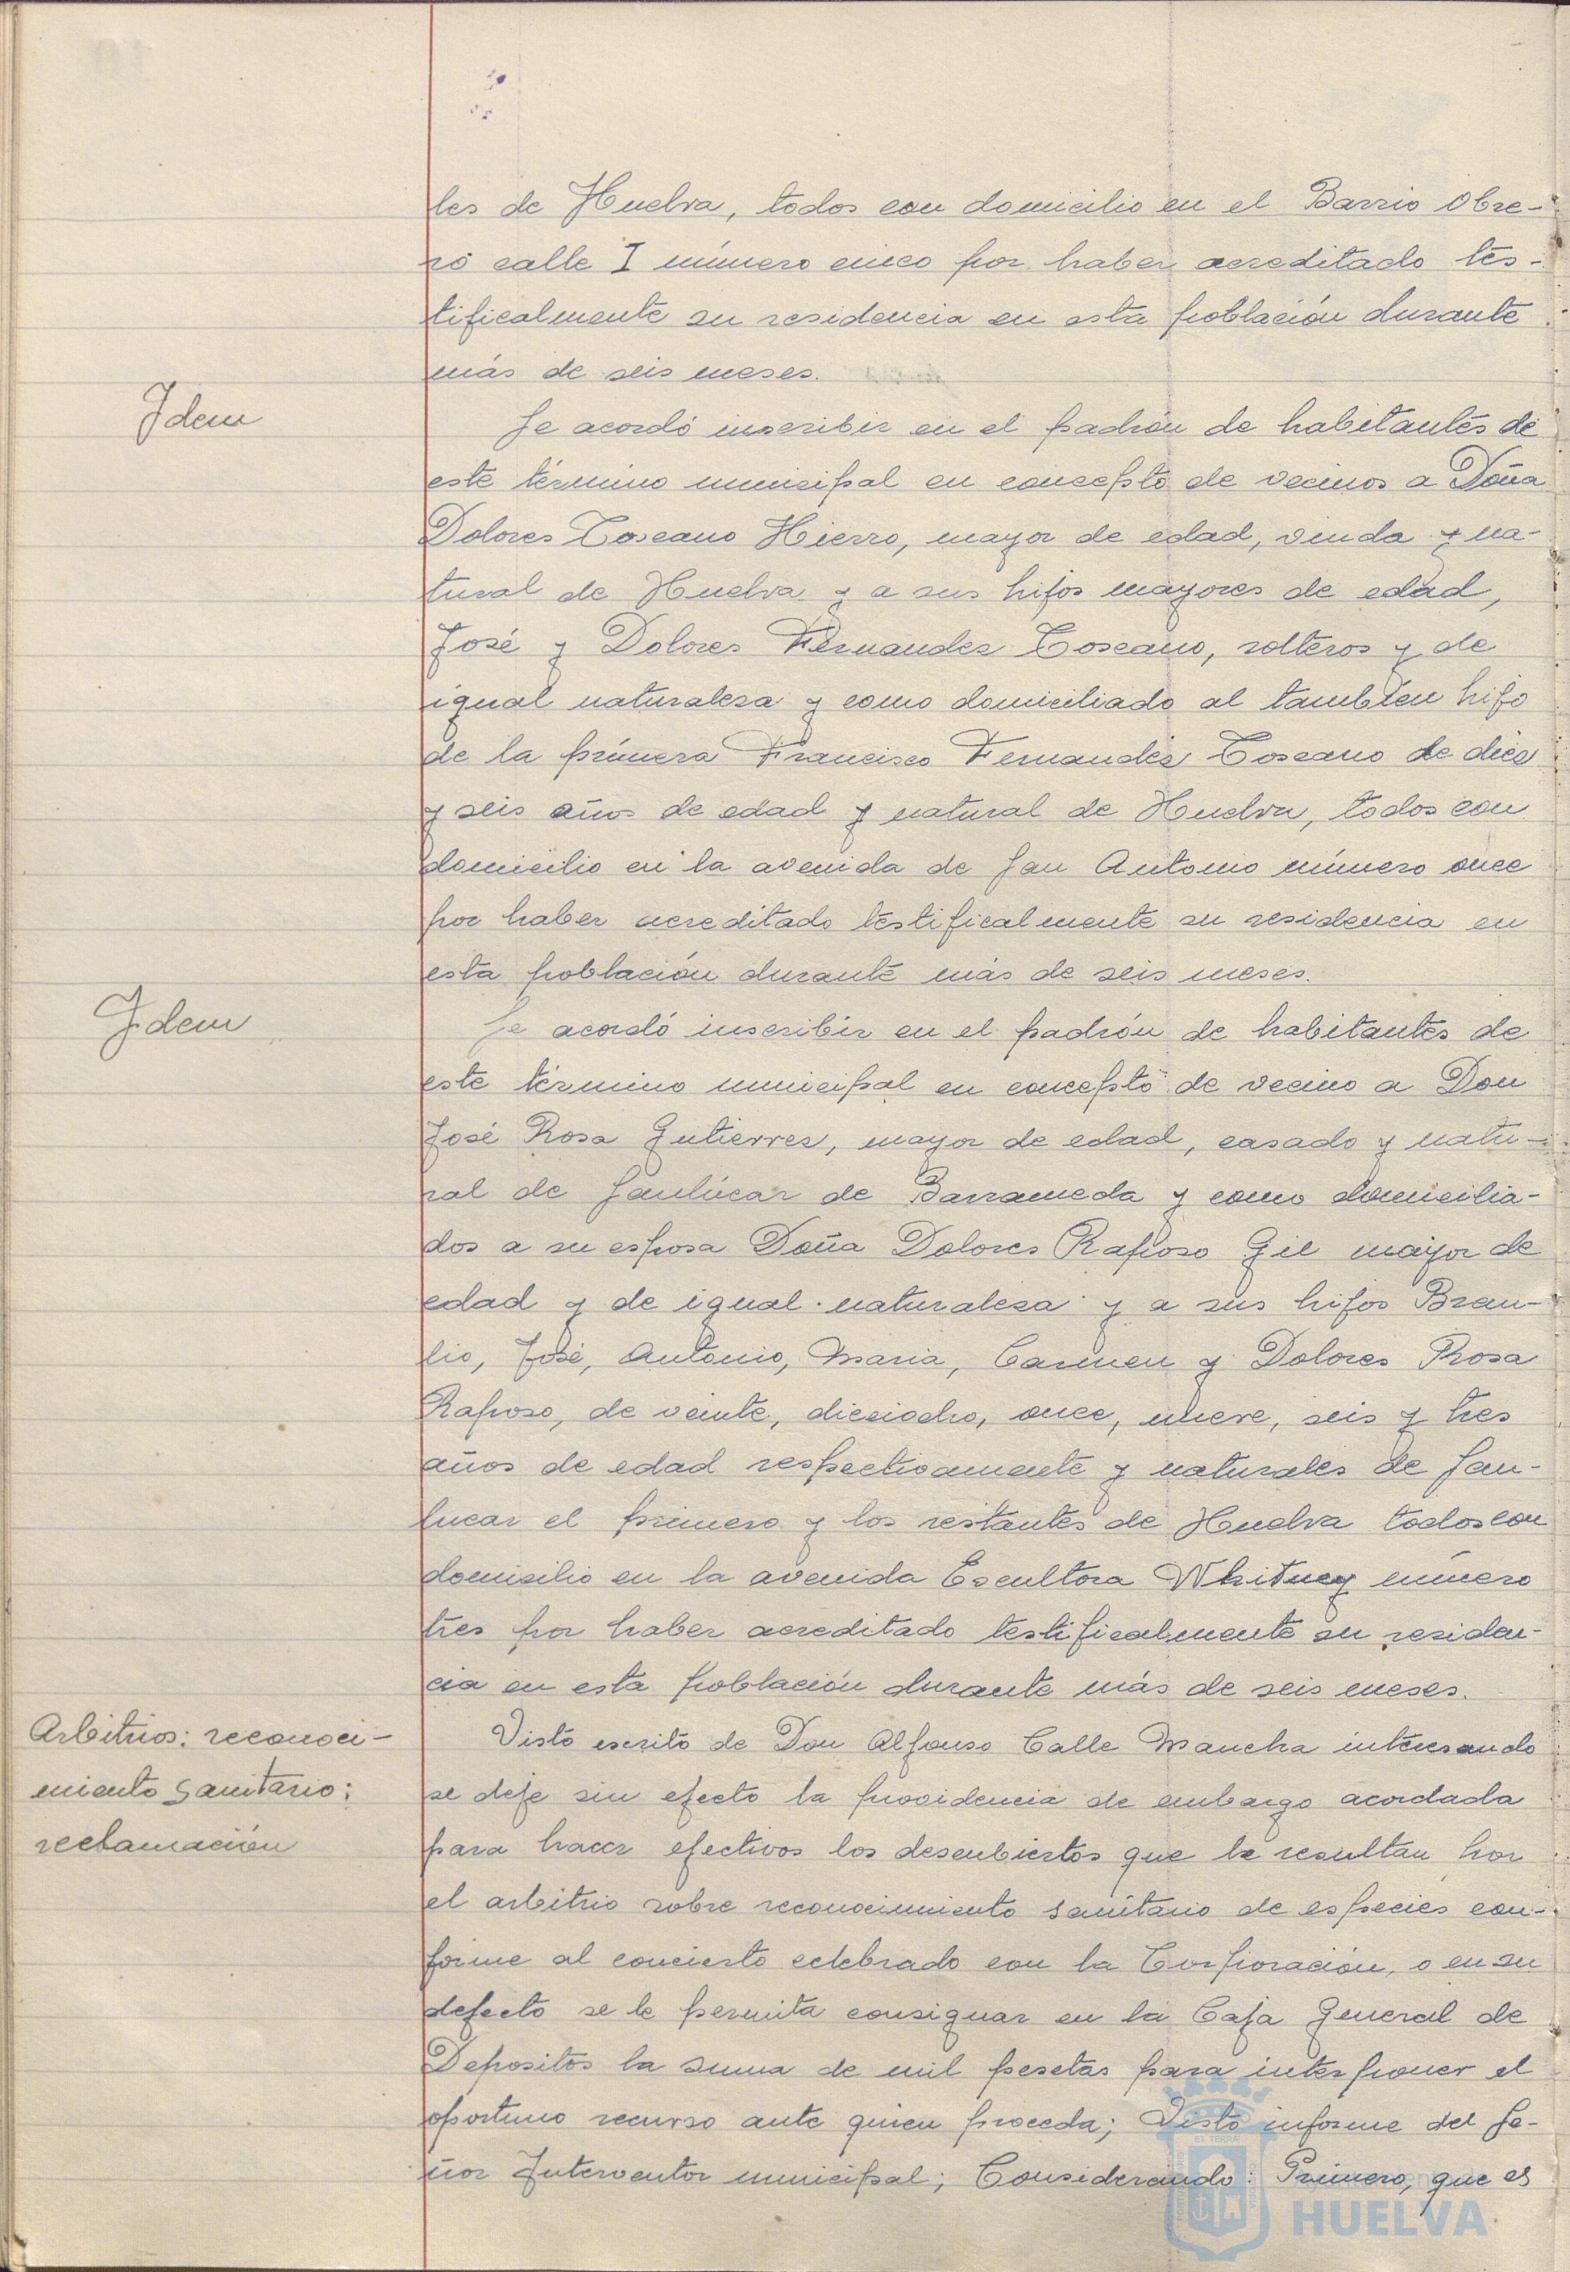 les de Huelva, todos con domicilio en el Barrio Obre-
ro calle I número cinco por haber acreditado tes-
tificalmente su residencia en esta población durante
más de seis meses.
Idem
Se acordó inscribir en el padrón de habitantes de
este término municipal en concepto de vecinos a Doña
Dolores Toscano Hierro, mayor de edad, viuda y na-
tural de Huelva y a sus hijos mayores de edad,
José y Dolores Fernandez Toscano, solteros y de
igual naturaleza y como domiciliado al tambien hijo
de la primera Francisco Fernandez Toscano de diez
y seis años de edad y natural de Huelva, todos con
domicilio en la avenida de San Antonio número once
por haber acreditado testificalmente su residencia en
esta población durante más de seis meses.
Idem
Se acordó inscribir en el padrón de habitantes de
este término municipal en concepto de vecino a Don
José Rosa Gutierrez, mayor de edad, casado y natu-
ral de Sanlúcar de Barrameda y como domicilia-
dos a su esposa Doña Dolores Raposo Gil mayor de
edad y de igual naturaleza y a sus hijos Brau-
lio, José, Antonio, Maria, Carmen y Dolores Rosa
Raposo, de veinte, dieciocho, once, nueve, seis y tres
años de edad respectivamente y naturales de San-
lucar el primero y los restantes de Huelva todos con
domicilio en la avenida Escultora Whitney número
tres por haber acreditado testificalmente su residen-
cia en esta población durante más de seis meses.
Arbitrios: reconoci-
miento sanitario:
reclamación
Visto escrito de Don Alfonso Calle Mancha interesando
se deje sin efecto la providencia de embargo acordada
para hacer efectivos los descubiertos que le resultan por
el arbitrio sobre reconocimiento sanitario de especies con-
forme al concierto celebrado con la Corporación, o en su
defecto se le permita consignar en la Caja General de
Depositos la suma de mil pesetas para interponer el
oportuno recurso ante quien proceda; Visto informe del Se-
ñor Interventor municipal; Considerando: Primero, que es
HUELVA